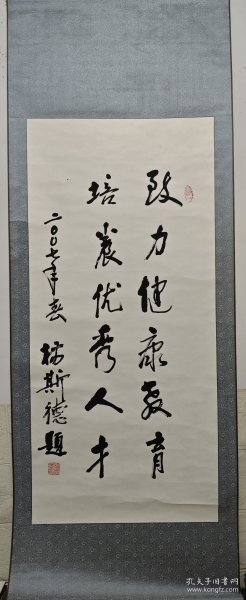 致力健康教育
培养优秀人才
二〇〇七年春
杨斯德题
孔夫子旧书网
kongfz.com